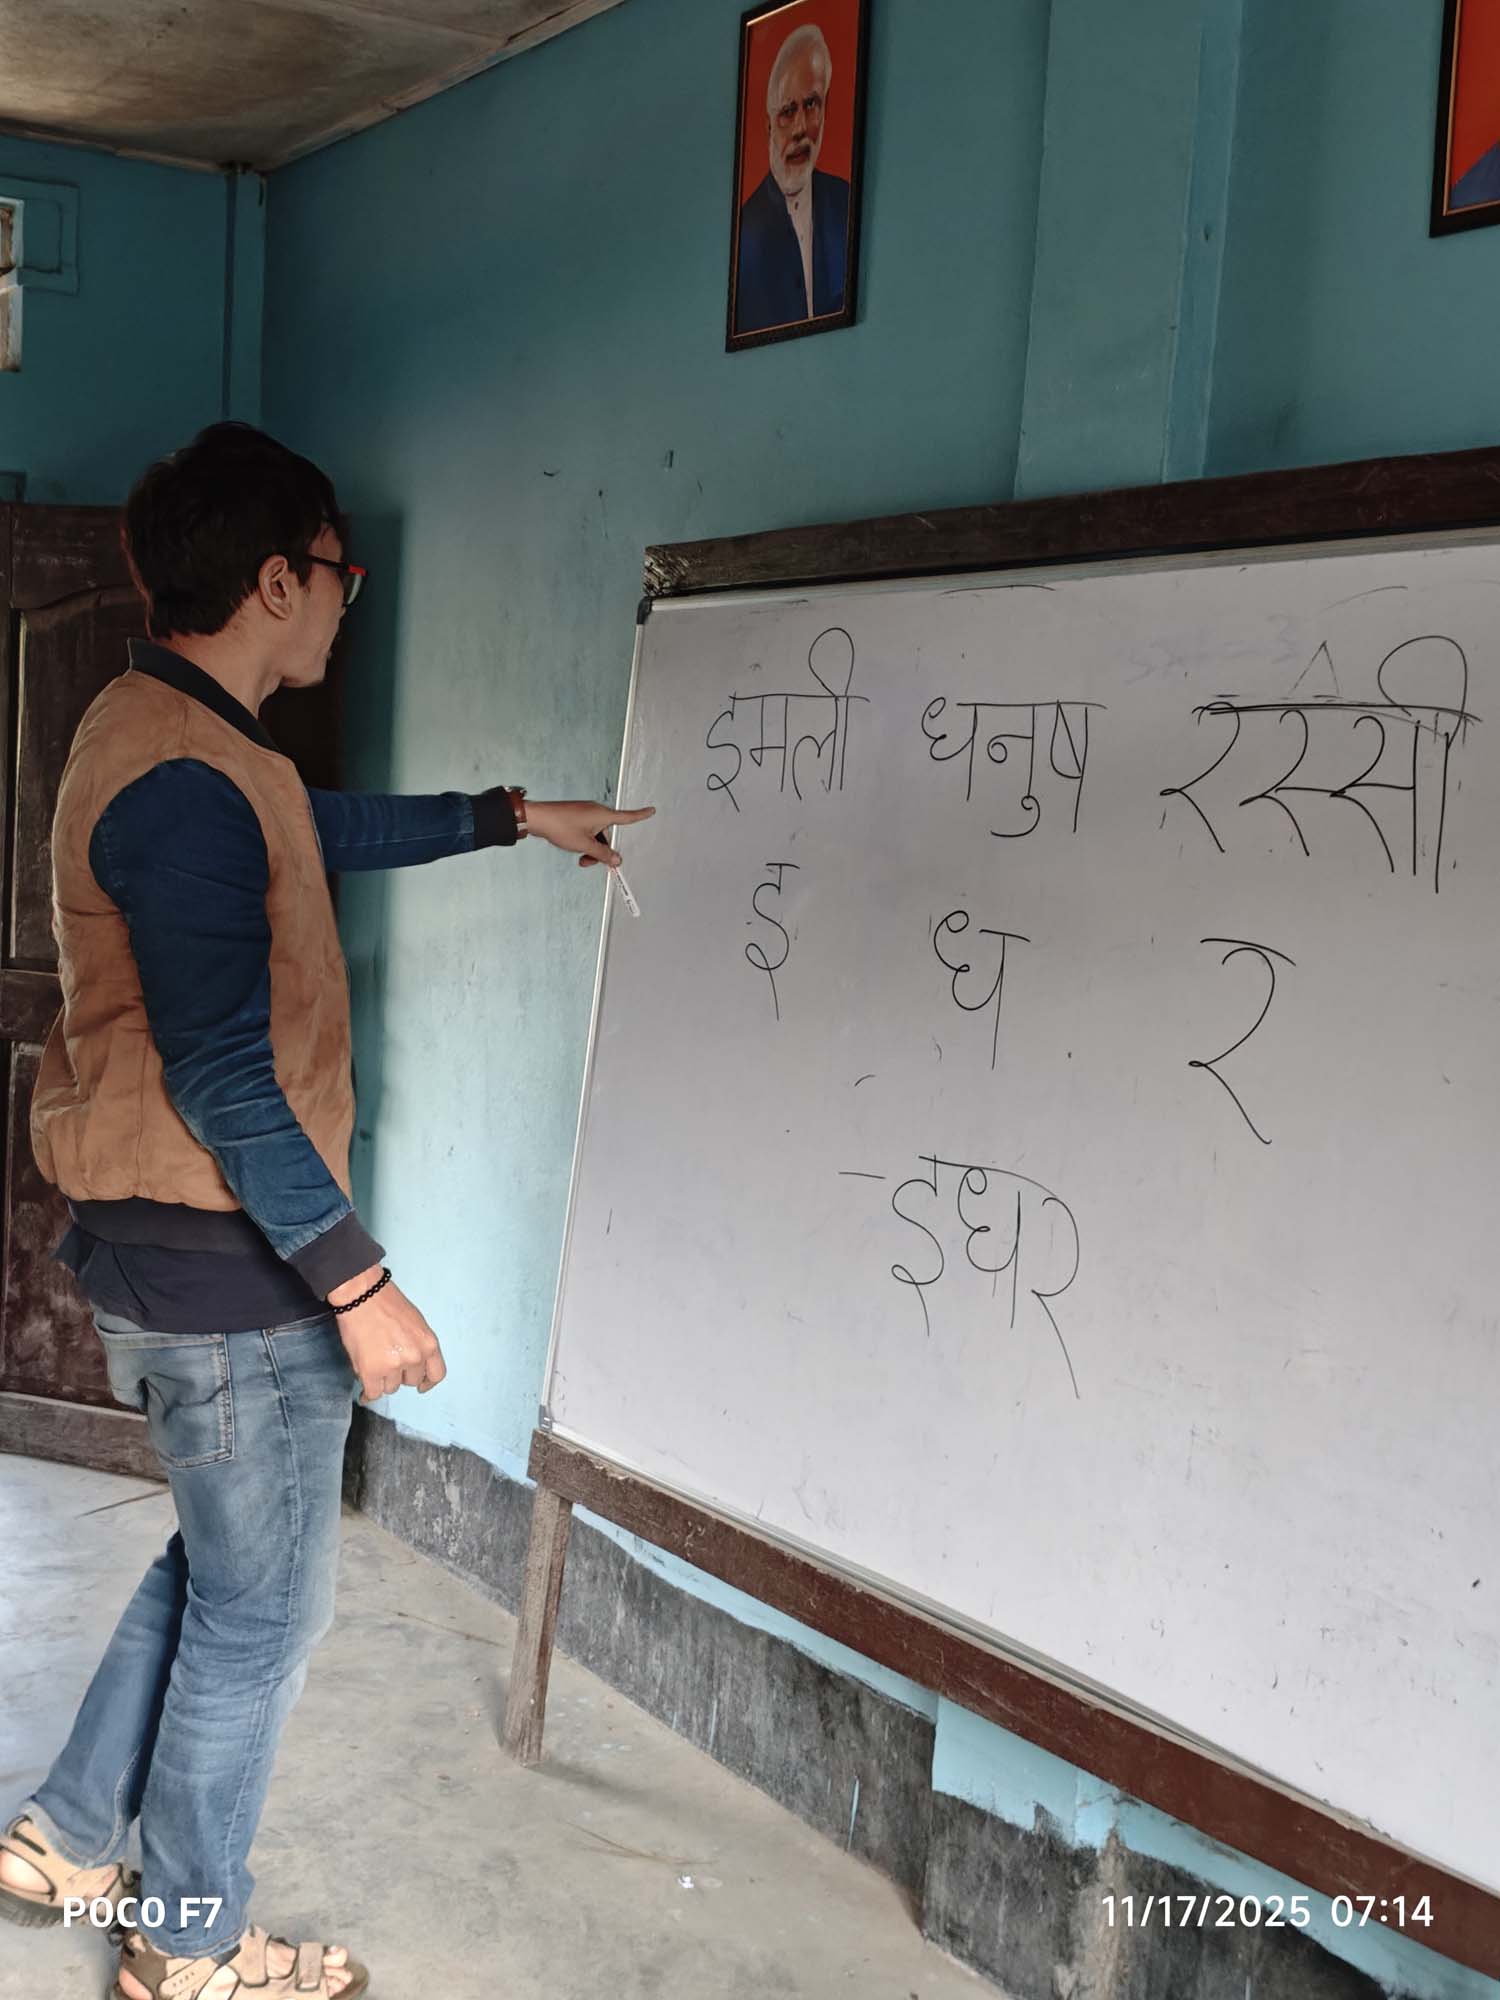 इमली धनुष रस्सी
इ ध र
इधर
POCO F7
11/17/2025 07:14